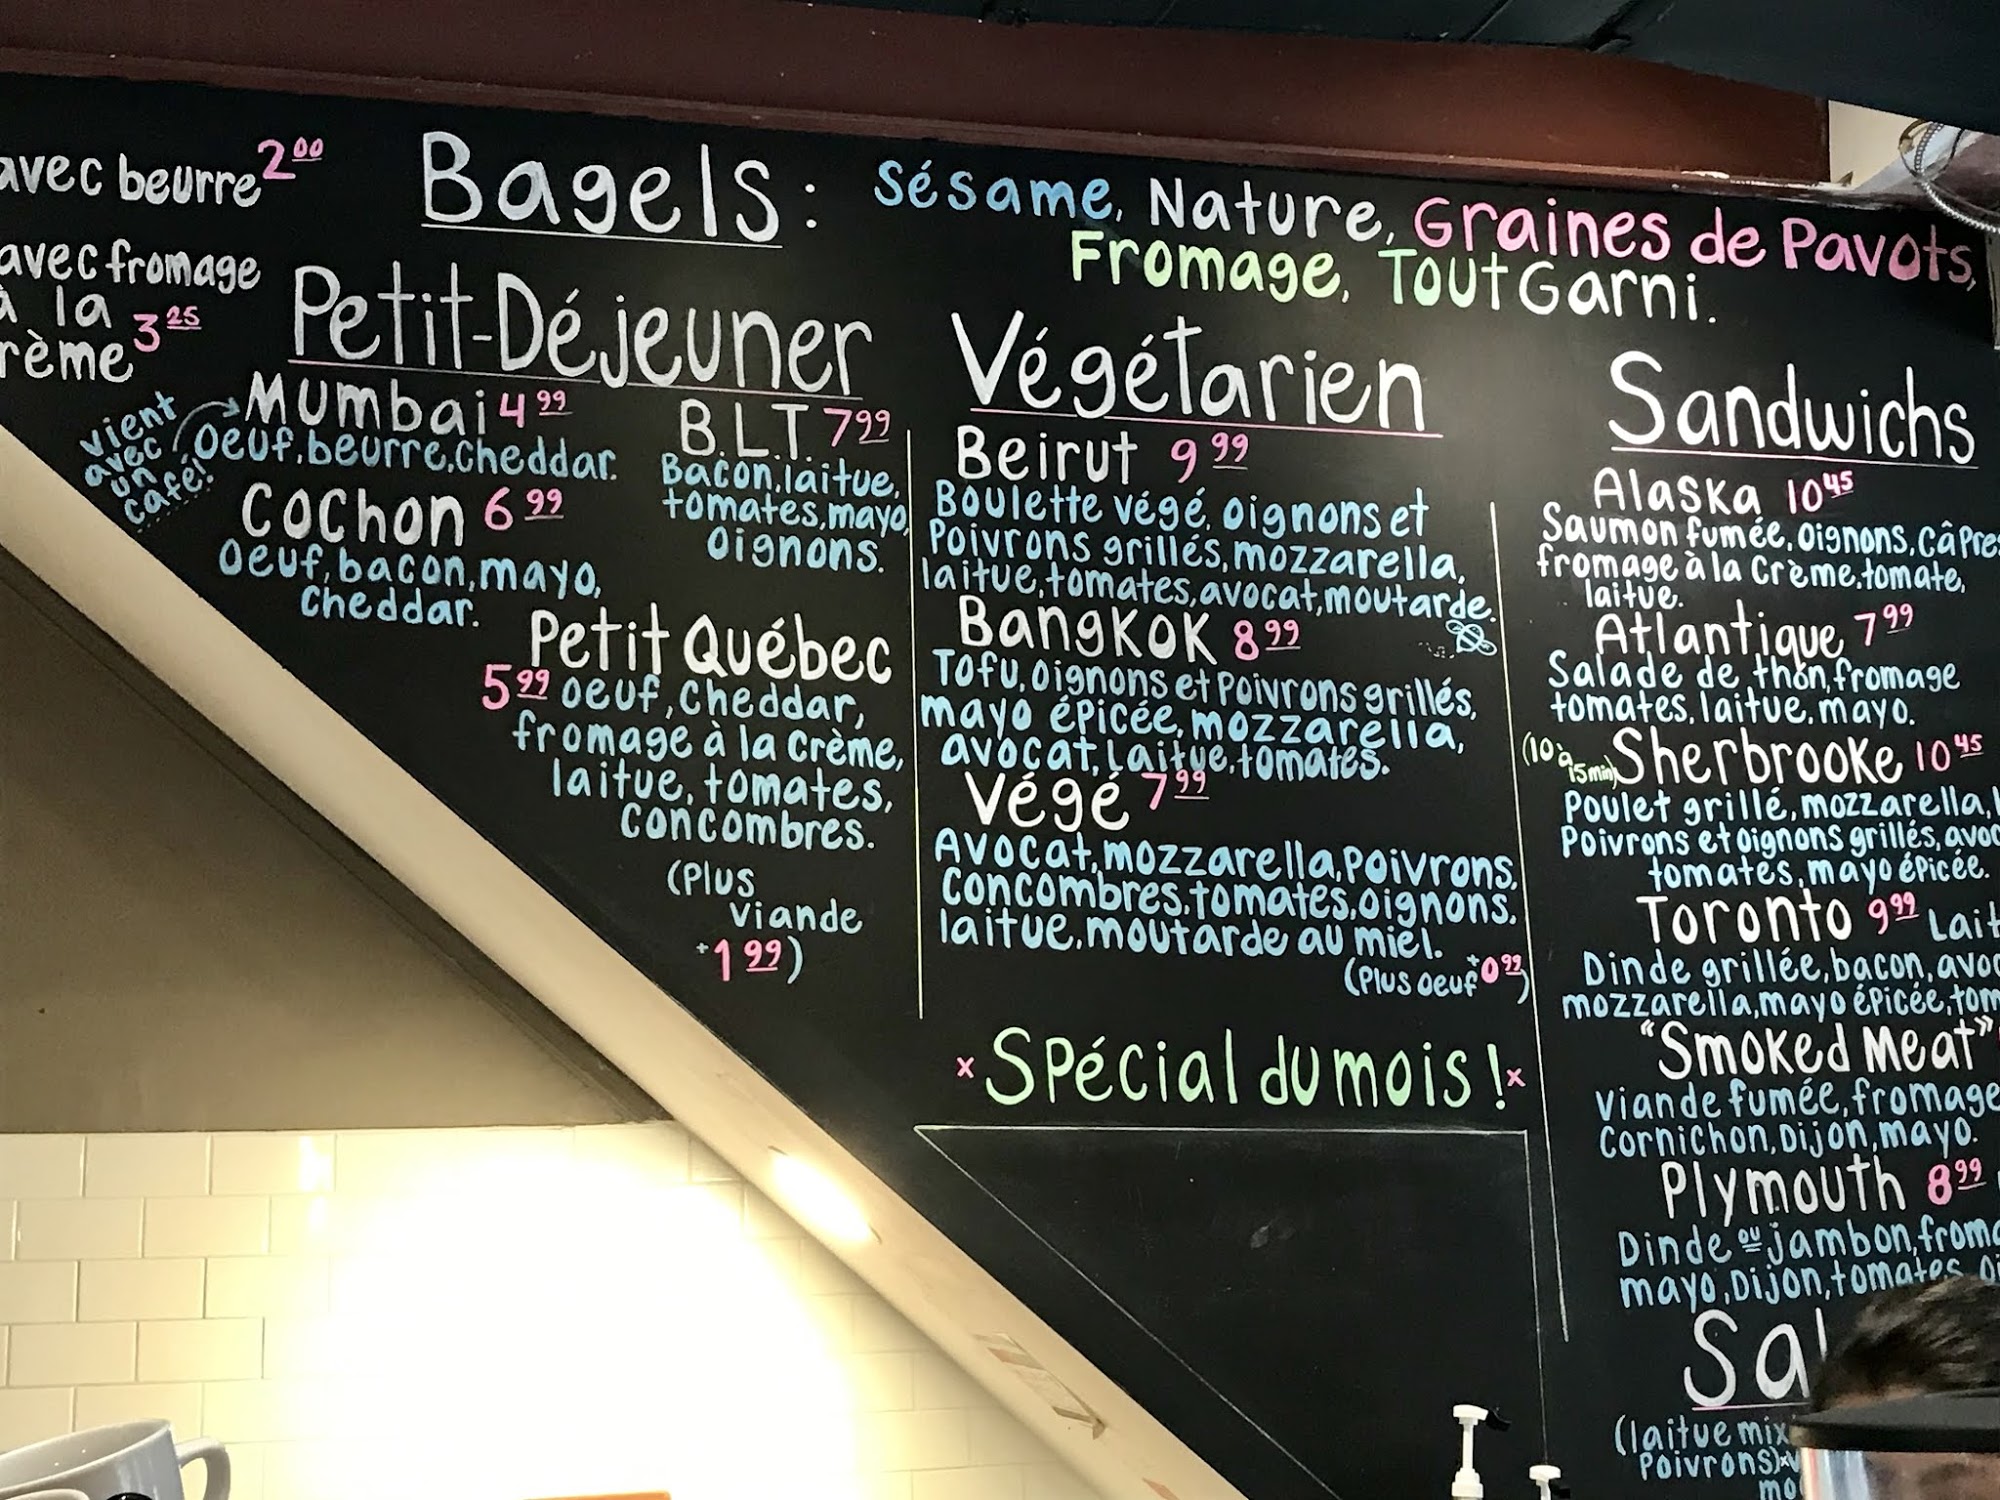 avec beurre 2 00
avec fromage
à la
3 25
Bagels: Sésame, Nature, Graines de Pavots,
Fromage, Tout Garni.
Petit-Déjeuner
vient
avec
un
café!
Mumbai 4 99
Oeuf, beurre, cheddar.
Cochon 6 99
Oeuf, bacon, mayo,
Cheddar.
B.L.T. 7 99
Bacon, laitue,
tomates, mayo,
oignons.
Petit Québec
5 99 oeuf, Cheddar,
fromage à la Crème,
laitue, tomates,
Concombres.
(Plus
viande
+1 99)
Végétarien
Beirut 9 99
Boulette végé, oignons et
Poivrons grillés, mozzarella,
laitue, tomates, avocat, moutarde.
Bangkok 8 99
Tofu, Oignons et poivrons grillés,
mayo épicée, mozzarella,
avocat, laitue, tomates.
Végé 7 99
Avocat, mozzarella, poivrons,
Concombres, tomates, oignons,
laitue, moutarde au miel.
(Plus oeuf +0 99)
x Spécial du mois! x
Sandwichs
Alaska 10 45
Saumon fumée, Oignons,
fromage à la Crème, tomate,
laitue.
Atlantique 7 99
Salade de thon, fromage
tomates, laitue, mayo.
(10 à 15 min) Sherbrooke 10 45
Poulet grillé, mozzarella,
Poivrons et oignons grillés,
tomates, mayo épicée.
Toronto 9 99
Dinde grillée, bacon,
mozzarella, mayo épicée,
"Smoked Meat"
Viande fumée, fromage
Cornichon, Dijon, mayo.
Plymouth 8 99
Dinde ou jambon,
mayo, Dijon, tomates,
(laitue
Poivrons)